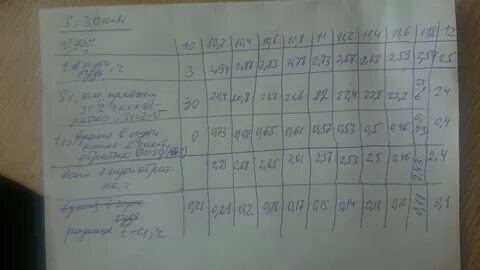 S = 30 км
10 10,2 10,4 10,6 10,8 11 11,2 11,4 11,6 12
t в пути туда, ч 3 2,94 2,88 2,83 2,78 2,73 2,68 2,63 2,59 2,54 2,5
S1, км проехал
за 2 часа
обратно, S1=2·V 20,8 21,2 21,6 22 22,4 22,8 23,2 23,6 24
t1, время в пути
после 2 часов
обратно 0 0,73 0,68 0,65 0,61 0,57 0,53 0,5 0,46 0,43 0,4
всего в пути обратно, ч 2,73 2,68 2,65 2,61 2,57 2,53 2,5 2,46 2,43 2,4
туда
разница t-t1, ч 0,21 0,21 0,2 0,18 0,17 0,15 0,14 0,13 0,12 0,11 0,1